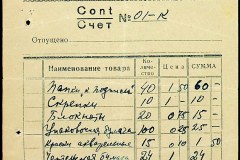 Cont
Счет № 01-К
Отпущено
Наименование товара Количество Цена СУММА
Папки "к подписи" 40 1 50 60 -
Скрепки
Блокноты 20 0 75 15 -
Упаковочная бумага 100 0 25 25 -
Краски акварельные 15 0 10 1 50
бумага 24 24